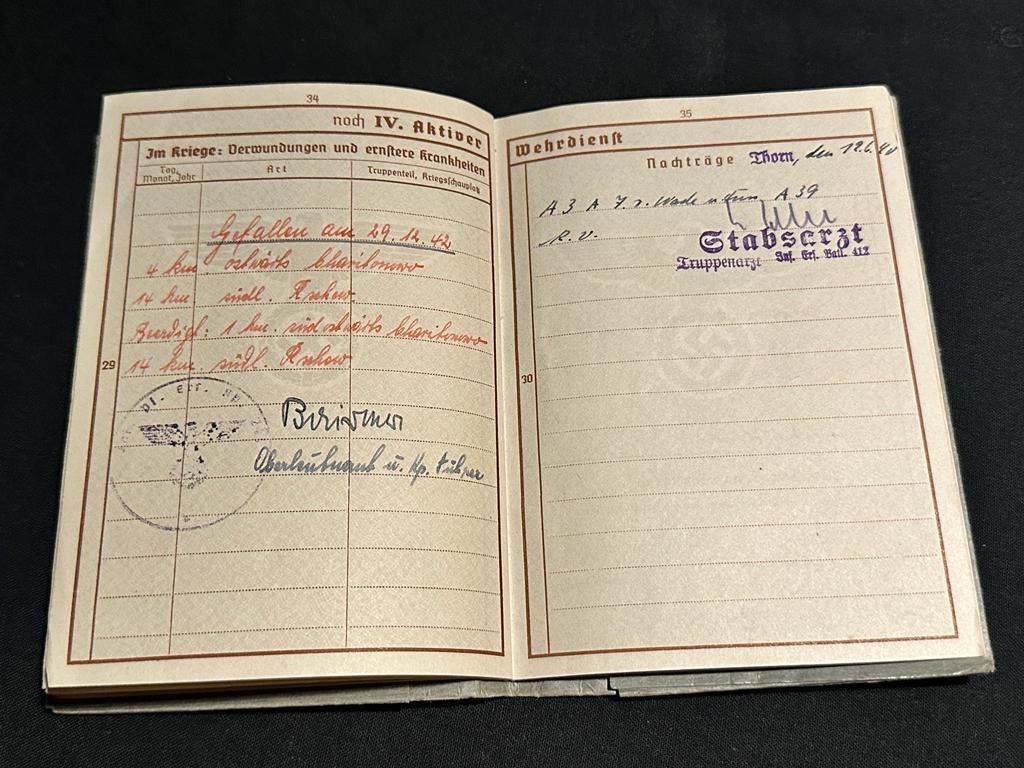 34
noch IV. Aktiver
Im Kriege: Verwundungen und ernstere Krankheiten
Tag, Monat, Jahr
Art
Truppenteil, Kriegsschauplatz
Gefallen am 29.12.42
4 km ostwärts Charitonowo
14 km südl. Rshew.
Beerdigt: 1 km. südostwärts Charitonowo
14 km. südl. Rshew
29
Oberleutnant u. Kp. Führer
35
Wehrdienst
Nachträge Thorn, den 12.6.40
A 3 A 7 r. Wade A 39
K. v.
Stabsarzt
Truppenarzt Inf. Ers. Batl. 412
30